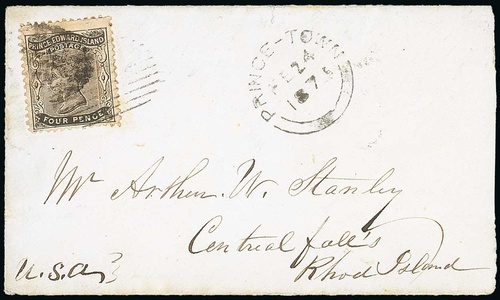 PRINCE EDWARD ISLAND
POSTAGE
FOUR PENCE
PRINCE-TOWN
FE 24
Mr Arthur. W. Stanley
Central fall's
Rhod Island
U.S.A